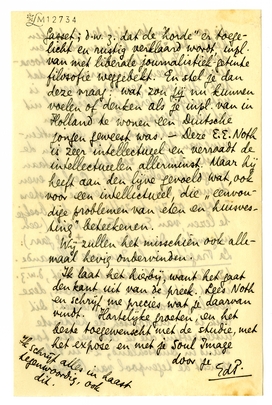 M12734
Gasset; d.w.z. dat de "horde" er toege-
licht en rustig verklaard wordt, inpl.
van met liberale journalistiek-getinte
filosofie weggebekt. En stel je dan
deze vraag: wat zou jij nu kunnen
voelen of denken als je inpl. van in
Holland te wonen een Duitsche
jongen geweest was. — Deze E.E. Noth
is zeer intellectueel en verraadt de
intellectueelen allerminst. Maar hij
heeft aan den lijve gevoeld wat, ook
voor een intellectueel, die "eenvou-
dige problemen van eten en huisves-
ting" beteekenen.
Wij zullen het misschien ook alle-
maal hevig ondervinden.
Ik laat het hierbij, want het gaat
den kant uit van de preek. Lees Noth
en schrijf me precies wat je daarvan
vindt. Hartelijke groeten, en het
beste toegewenscht met de studie, met
het exposé en met je Soul Image
door je
EdP.
Ik schrijf alles in haast
tegenwoordig; ook
dit.